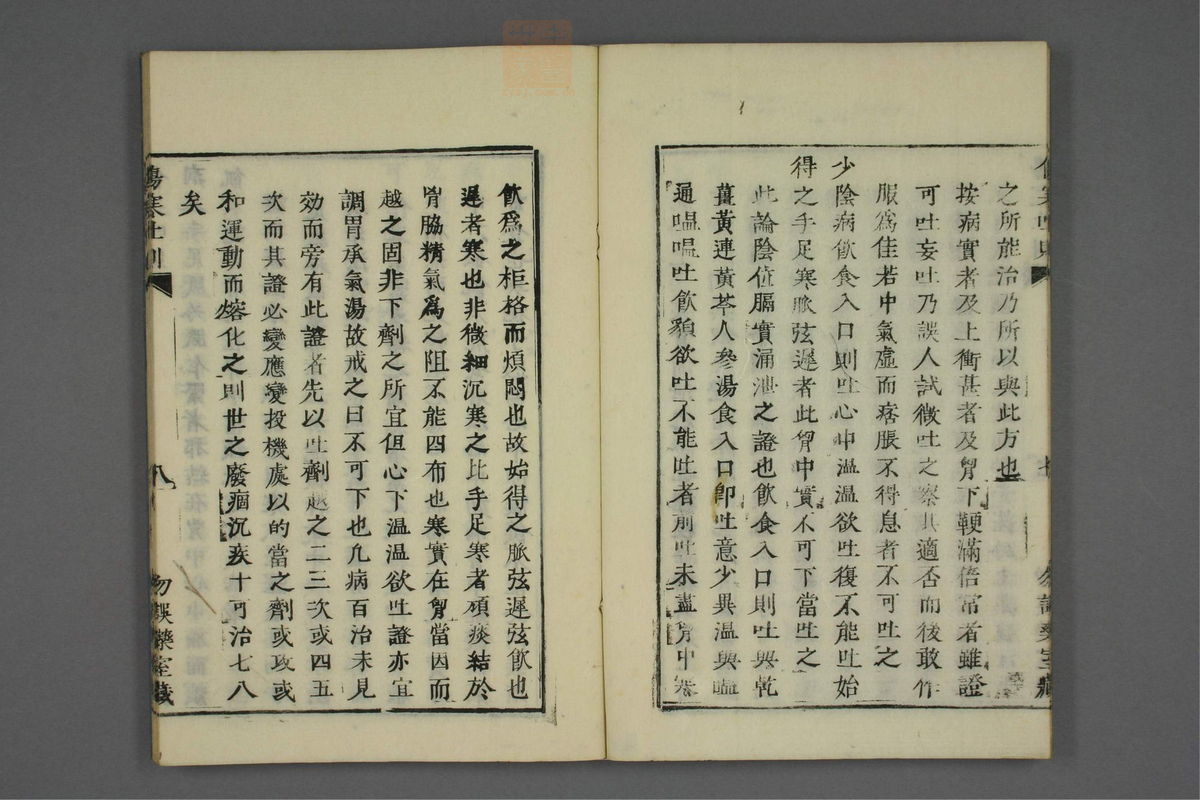 之所能治乃所以與此方也
按病實者及上衝甚者及胷下鞕滿倍常者雖證
可吐妄吐乃誤人試微吐之察其適否而後敢作
服爲佳若中氣虛而痞脹不得息者不可吐之
少陰病飲食入口則吐心中溫溫欲吐復不能吐始
得之手足寒脈弦遲者此胷中實不可下當吐之
此論陰位膈實涌泄之證也飲食入口則吐與乾
薑黃連黃芩人參湯食入口卽吐意少異溫與嗢
通嗢嗢吐飲䫉欲吐不能吐者前吐未盡胷中寒
飲爲之柜格而煩悶也故始得之脈弦遲弦飲也
遲者寒也非微細沉寒之比手足寒者頑痰結於
胷脇精氣爲之阻不能四布也寒實在胷當因而
越之固非下劑之所宜但心下温温欲吐證亦宜
調胃承氣湯故戒之曰不可下也凡病百治未見
効而旁有此證者先以吐劑越之二三次或四五
次而其證必變應變投機處以的當之劑或攻或
和運動而熔化之則世之廢痼沉疾十可治七八
矣
傷寒吐則
八
勿誤藥室藏